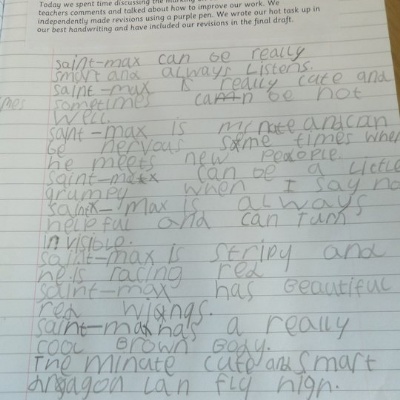 Today we spent time discussing the marking
teachers comments and talked about how to improve our work. We
independently made revisions using a purple pen. We wrote our hot task up in
our best handwriting and have included our revisions in the final draft.
saint-max can be really
smart and always listens.
saint-max is really cute and
sometimes can be not
well.
saint-max is minate and can
be nervous some times when
he meets new people.
saint-max can be a little
grumpy when I say no
saint-max is always
helpful and can turn
invisible.
saint-max is stripy and
he is racing red
saint-max has beautiful
red wings.
saint-max has a really
cool brown body.
The minate cute and smart
can fly high.